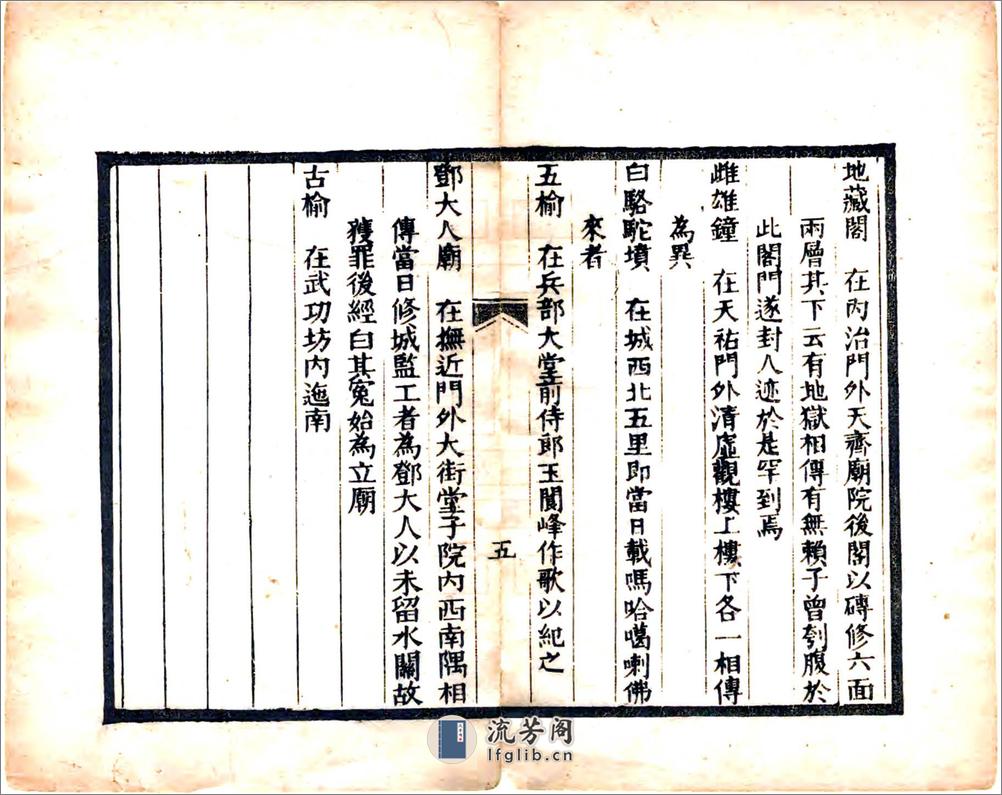 地藏閣　在內治門外天齊廟院後閣以磚修六面
兩層其下云有地獄相傳有無賴子曾刳腹於
此閣門遂封人迹於是罕到焉
雌雄鐘　在天祐門外清虛觀樓上樓下各一相傳
為異
白駱駝墳　在城西北五里即當日載嗎哈噶喇佛
來者
五榆　在兵部大堂前侍郎玉閬峰作歌以紀之
五
鄧大人廟　在撫近門外大街堂子院內西南隅相
傳當日修城監工者為鄧大人以未留水關故
獲罪後經白其冤始為立廟
古榆　在武功坊內迤南
流芳阁
lfglib.cn